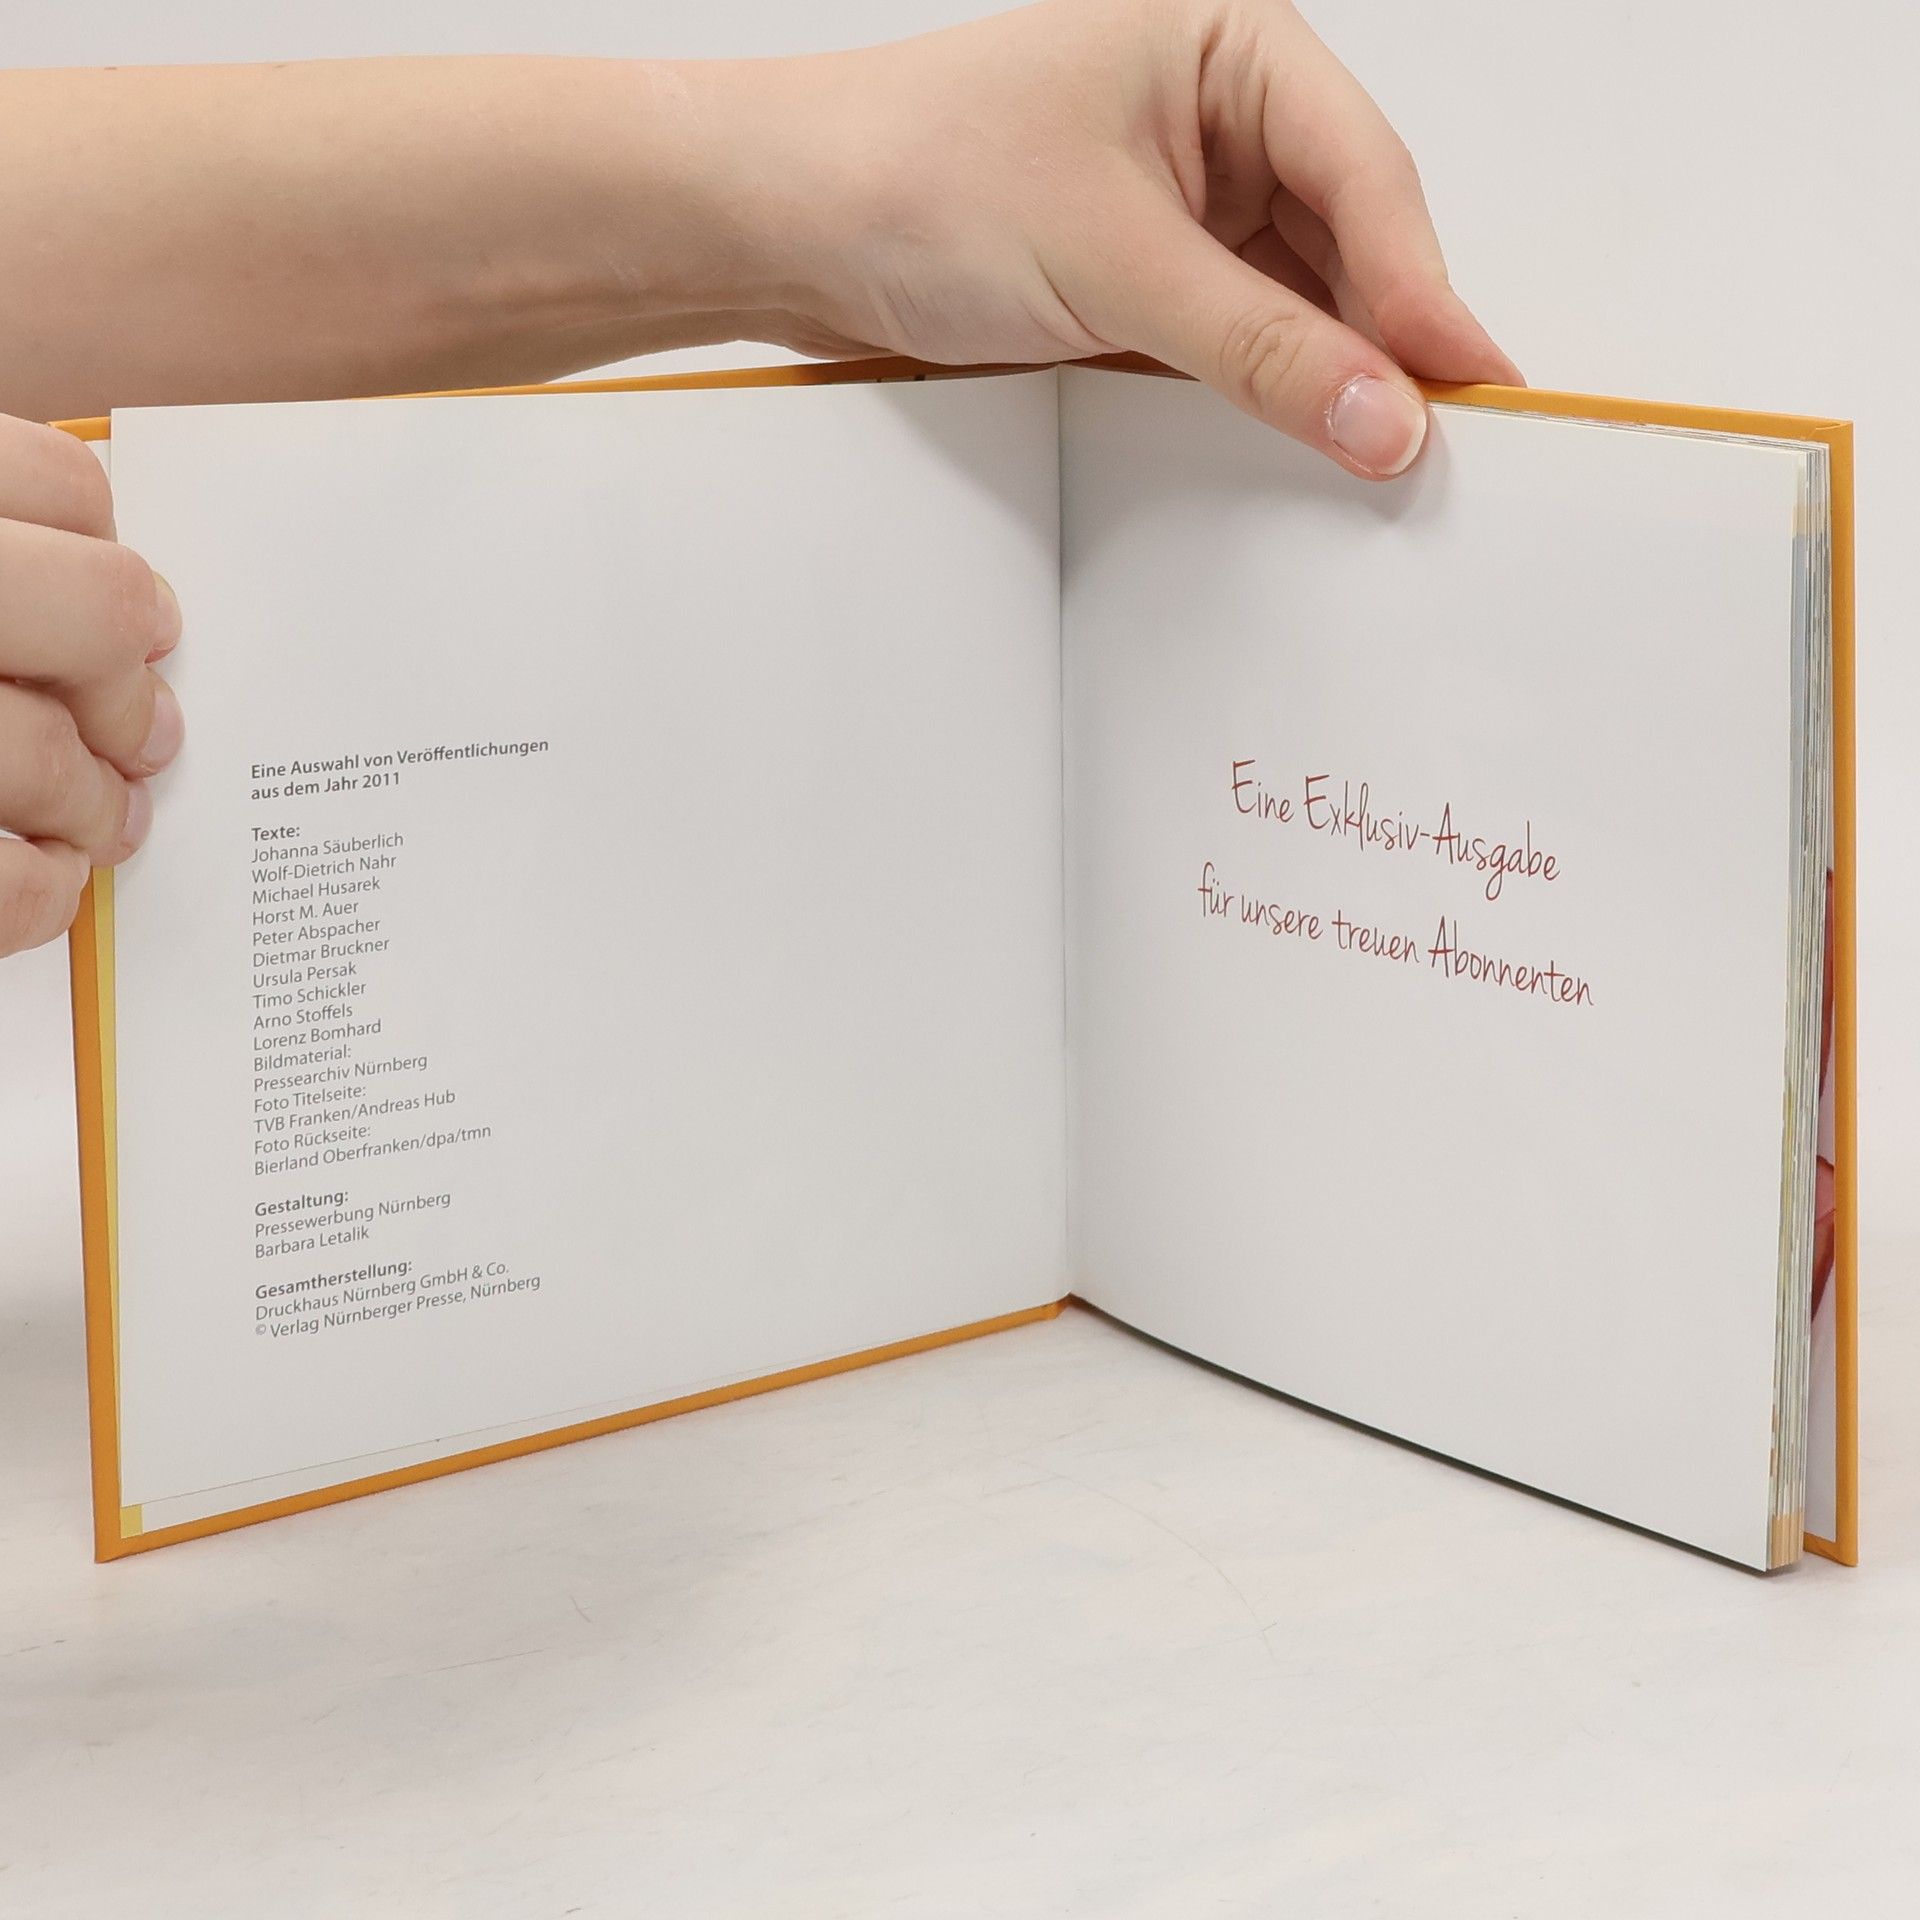 Eine Auswahl von Veröffentlichungen
aus dem Jahr 2011
Texte:
Johanna Säuberlich
Wolf-Dietrich Nahr
Michael Husarek
Horst M. Auer
Peter Abspacher
Dietmar Bruckner
Ursula Persak
Timo Schickler
Arno Stoffels
Lorenz Bomhard
Bildmaterial:
Pressearchiv Nürnberg
Foto Titelseite:
TVB Franken/Andreas Hub
Foto Rückseite:
Bierland Oberfranken/dpa/tmn
Gestaltung:
Pressewerbung Nürnberg
Barbara Letalik
Gesamtherstellung:
Druckhaus Nürnberg GmbH & Co.
© Verlag Nürnberger Presse, Nürnberg
Eine Exklusiv-Ausgabe
für unsere treuen Abonnenten